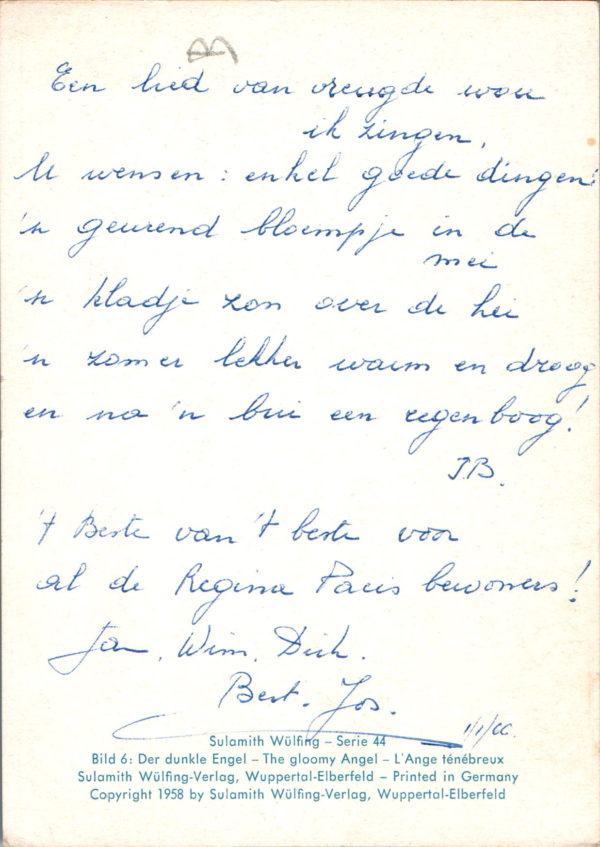 B
Een lied van vreugde wou
ik zingen,
U wensen: enkel goede dingen:
'n geurend bloempje in de
mei
'n kladje zon over de hei
'n zomer lekker warm en droog
en na 'n bui een regenboog!
J.B.
't Beste van 't beste voor
al de Regina Pacis bewoners!
Jan. Wim. Dirk.
Bert. Jos.
1/1/66.
Sulamith Wülfing – Serie 44
Bild 6: Der dunkle Engel – The gloomy Angel – L'Ange ténébreux
Sulamith Wülfing-Verlag, Wuppertal-Elberfeld – Printed in Germany
Copyright 1958 by Sulamith Wülfing-Verlag, Wuppertal-Elberfeld